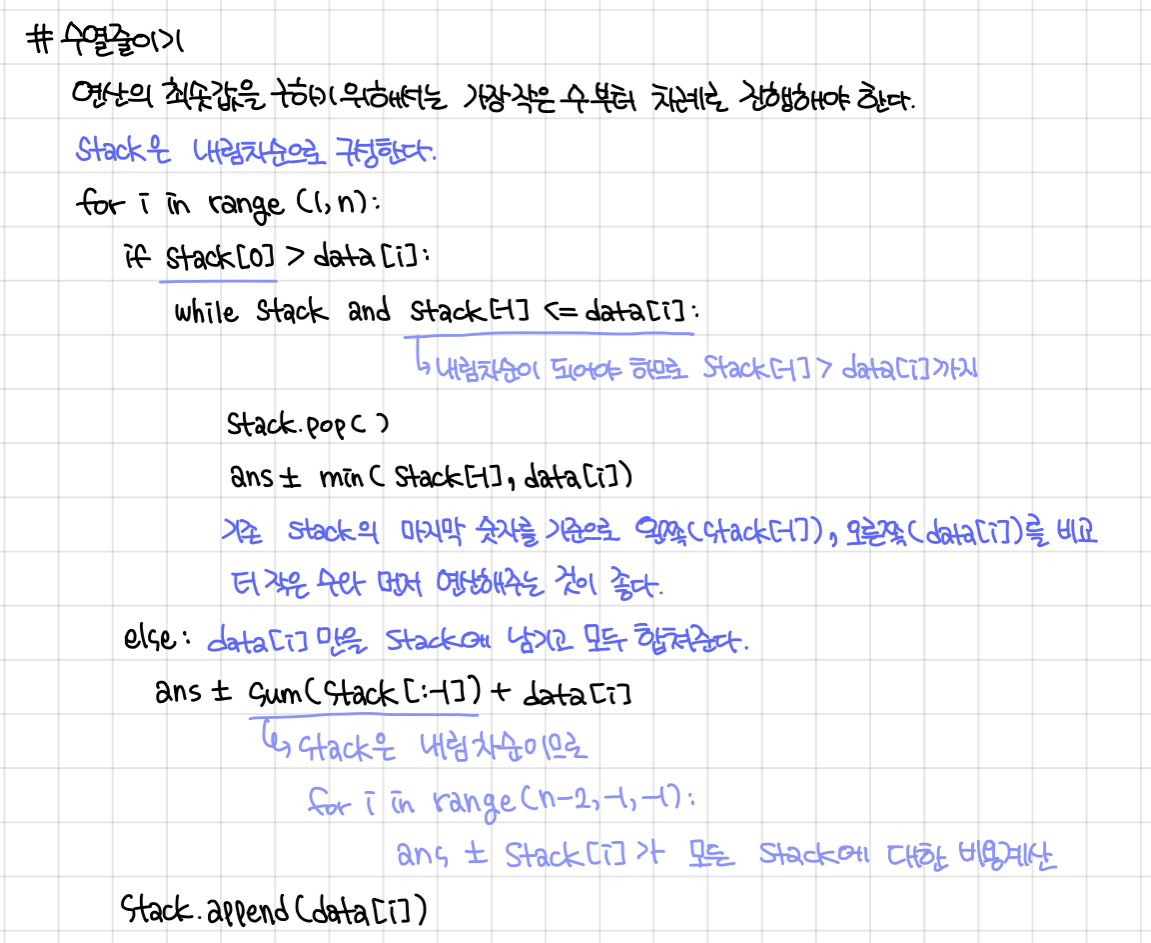 # 수열줄이기
연산의 최솟값을 구하기 위해서는 가장 작은 수부터 차례로 진행해야 한다.
Stack은 내림차순으로 구성한다.
for i in range (1, n):
if stack[0] > data[i]:
while Stack and Stack[-1] <= data[i]:
↳ 내림차순이 되어야 하므로 Stack[-1] > data[i]까지
Stack.pop( )
ans ± min( Stack[-1], data[i])
기존 Stack의 마지막 숫자를 기준으로 왼쪽(Stack[-1]), 오른쪽(data[i])를 비교
더 작은 수와 먼저 연산해주는 것이 좋다.
else: data[i] 만을 Stack에 남기고 모두 합쳐준다.
ans ± Sum(Stack[:-1]) + data[i]
↳ Stack은 내림차순이므로
for i in range(n-2, -1, -1):
ans ± Stack[i]가 모든 Stack에 대한 비용계산
Stack.append(data[i])